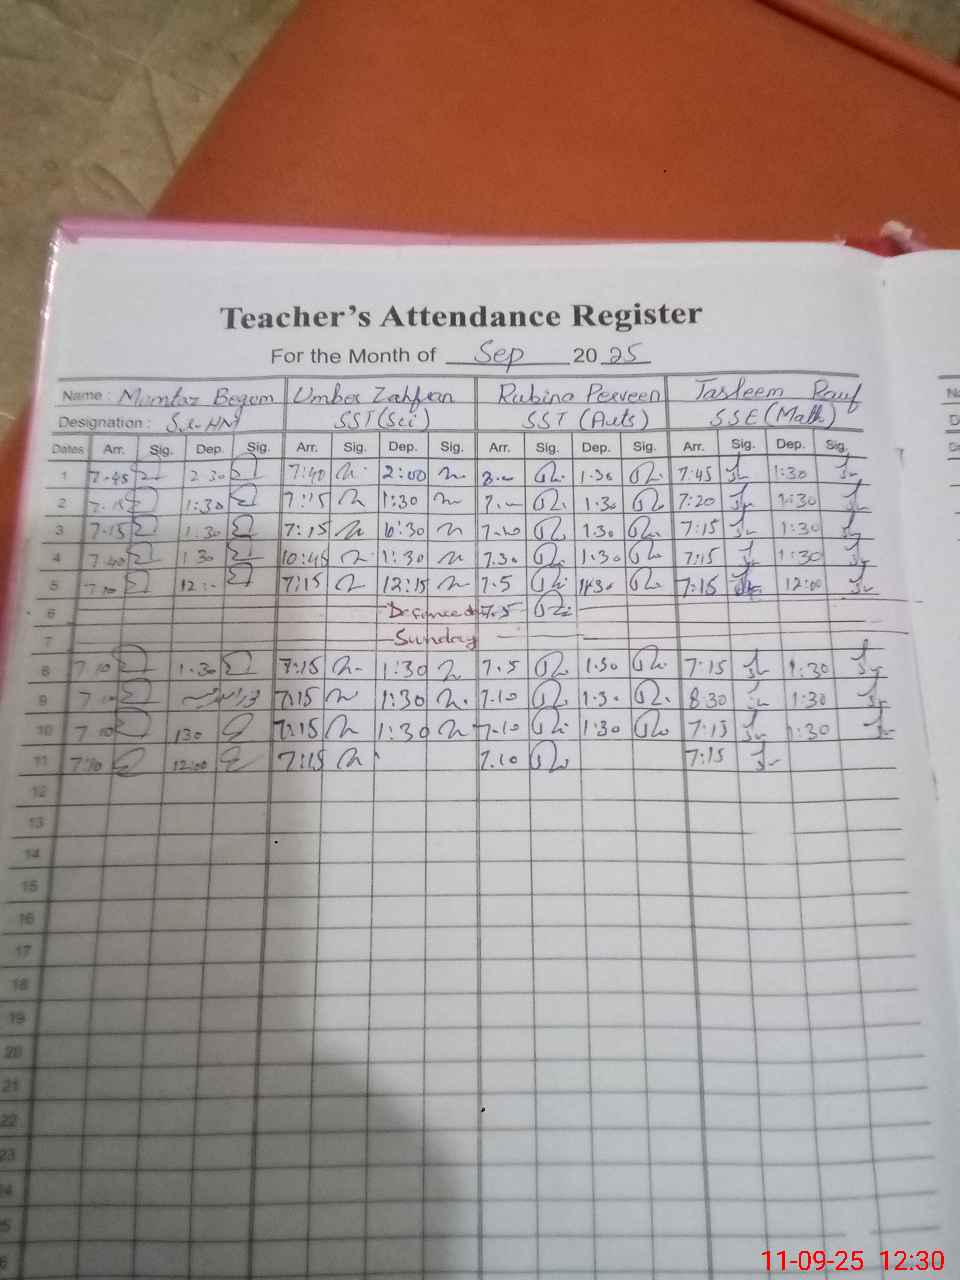 Teacher's Attendance Register
For the Month of Sep 20 25
Name: Mumtaz Begum Umber Rubina Perveen Tasleem Rauf
Designation: SST (Sci) SST (Arts) SSE (Math)
Dates Arr. Sig. Dep. Sig. Arr. Sig. Dep. Sig. Arr. Sig. Dep. Sig. Arr. Sig. Dep. Sig.
1 7.45 2.30 7:40 2:00 8.- 1.30 7:45 1:30
2 7.15 1:30 7:15 1:30 7.- 1.30 7:20 1:30
3 7.15 1.30 7:15 :30 7.10 1.30 7:15 1:30
4 7.40 1.30 10:45 1:30 7.30 1:30 7:15 1:30
5 7.10 12:- 7:15 12:15 7.5 1:30 7:15 12:00
6 7.5
7 Sunday
8 7.10 1.30 7:15 1:30 7.5 1.30 7:15 1:30
9 7.10 7:15 1:30 7.10 1:30 8:30 1:30
10 7.10 130 7:15 1:30 7.10 1:30 7:15 1:30
11 7:10 12:00 7:15 7.10 7:15
12
13
14
15
16
17
18
19
20
21
22
23
11-09-25 12:30